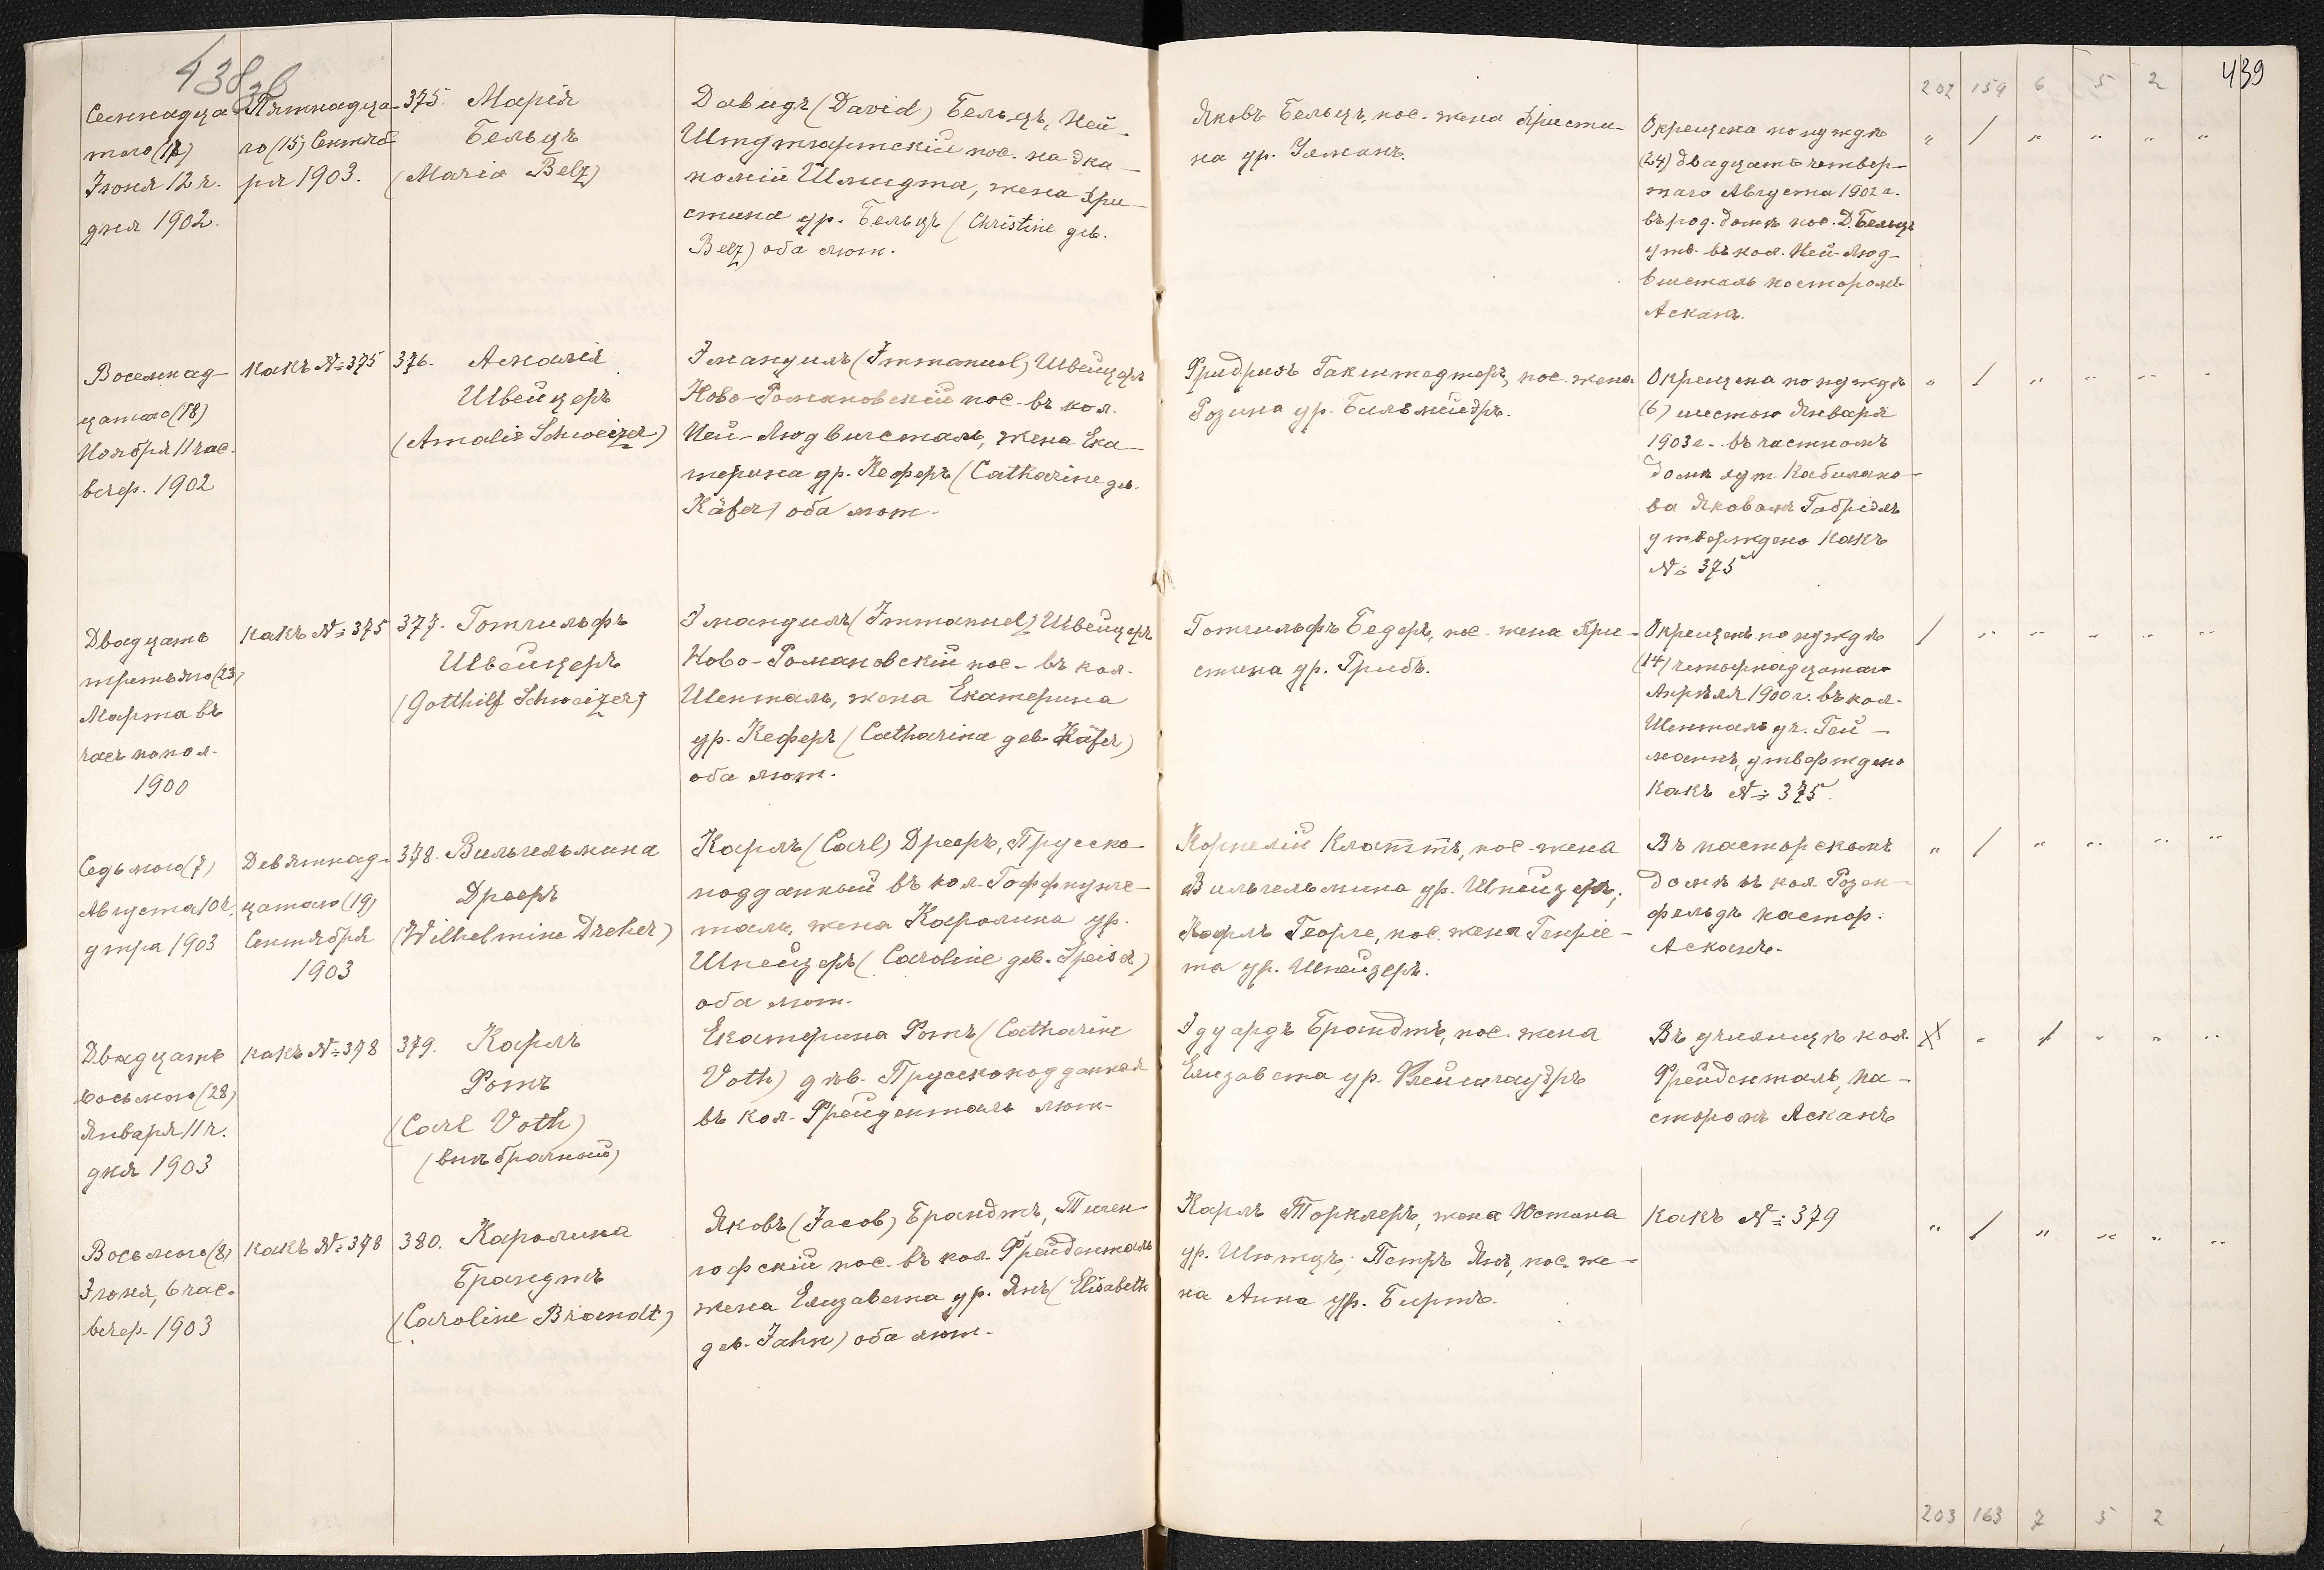 438
439
202 159 6 5 2
Семнадца-
таго (17)
Іюня 12 ч.
дня 1902.
Пятнадца-
го (15) Сентяб-
ря 1903.
375. Марія
Бельцъ
(Maria Belz)
Давидъ (David) Бельцъ, Ней-
Штутгартскій пос. на эко-
номіи Шмидта, жена Хри-
стина ур. Бельцъ (Christine geb.
Belz) оба лют.
Яковъ Бельцъ, пос. жена Христи-
на ур.
Окрещена по нуждѣ
(24) двадцать четвер-
таго Августа 1902 г.
въ род. домѣ пос. Д. Бельцъ
утв. въ кол. Ней-Люд-
вигсталь пасторомъ
Асканъ.
" / " " " "
Восемнад-
цатаго (18)
Ноября 11 час.
вечер. 1902
какъ №: 375
376. Амалія
Швейцеръ
(Amalie Schweizer)
Імануилъ (Immanuel) Швейцеръ
Ново-Романовскій пос. въ кол.
Ней-Людвигсталь, жена Ека-
терина ур. Кеферъ (Catharine geb.
Käfer) оба лют.
Фридрихъ пос. жена
Розина ур.
Окрещена по нуждѣ
(6) шестого Января
1903 г. въ частномъ
домѣ хут. Кабилако-
ва Яковомъ Габріэль
утверждено какъ
№: 375
" / " " " "
Двадцать
третьяго (23)
Марта въ
часъ попол.
1900
какъ №: 375
377. Готгильфъ
Швейцеръ
(Gotthilf Schweizer)
Імануилъ (Immanuel) Швейцеръ
Ново-Романовскій пос. въ кол.
Шенталь, жена Екатерина
ур. Кеферъ (Catharina geb. Käfer)
оба лют.
Готгильфъ Бедеръ, пос. жена Хри-
стина ур. Грибъ.
Окрещенъ по нуждѣ
(14) четырнадцатаго
Апрѣля 1900 г. въ кол.
Шенталь уч. Гей-
манъ, утверждено
какъ №: 375.
/ " " " " "
Седьмого (7)
Августа 10 ч.
утра 1903
Девятнад-
цатаго (19)
Сентября
1903
378. Вильгельмина
Дрееръ
(Wilhelmine Dreher)
Карлъ (Carl) Дрееръ, Прусско-
подданный въ кол. Гоффнунгс-
таль, жена Каролина ур.
Шпейзеръ (Caroline geb. Speiser)
оба лют.
Корнелій Клаттъ, пос. жена
Вильгельмина ур. Шпейзеръ;
Карлъ Георге, пос. жена Генріе-
та ур. Шпейзеръ.
Въ пасторскомъ
домѣ въ кол. Розен-
фельдъ пастор.
Асканъ.
" / " " " "
Двадцать
восьмого (28)
Января 11 ч.
дня 1903
какъ №: 378
379. Карлъ
Фотъ
(Carl Voth)
(внѣбрачный)
Екатерина Фотъ (Catharine
Voth) дѣв. Прусскоподданная
въ кол. Фрейденталь лют.
Эдуардъ Брандтъ, пос. жена
Елизавета ур.
Въ училищѣ кол.
Фрейденталь, па-
сторомъ Асканъ
X " / " " "
Восьмого (8)
Іюня, 6 час.
вечер. 1903
какъ №: 378
380. Каролина
Брандтъ
(Caroline Brandt)
Яковъ (Jacob) Брандтъ, Тиген-
гофскій пос. въ кол. Фрейденталь
жена Елизавета ур. Янъ (Elisabeth
geb. Jahn) оба лют.
Карлъ Торклеръ, жена Юстина
ур. Шютцъ; Петръ Янъ, пос. же-
на Анна ур. Биртъ.
какъ №: 379
" / " " " "
203 163 7 5 2